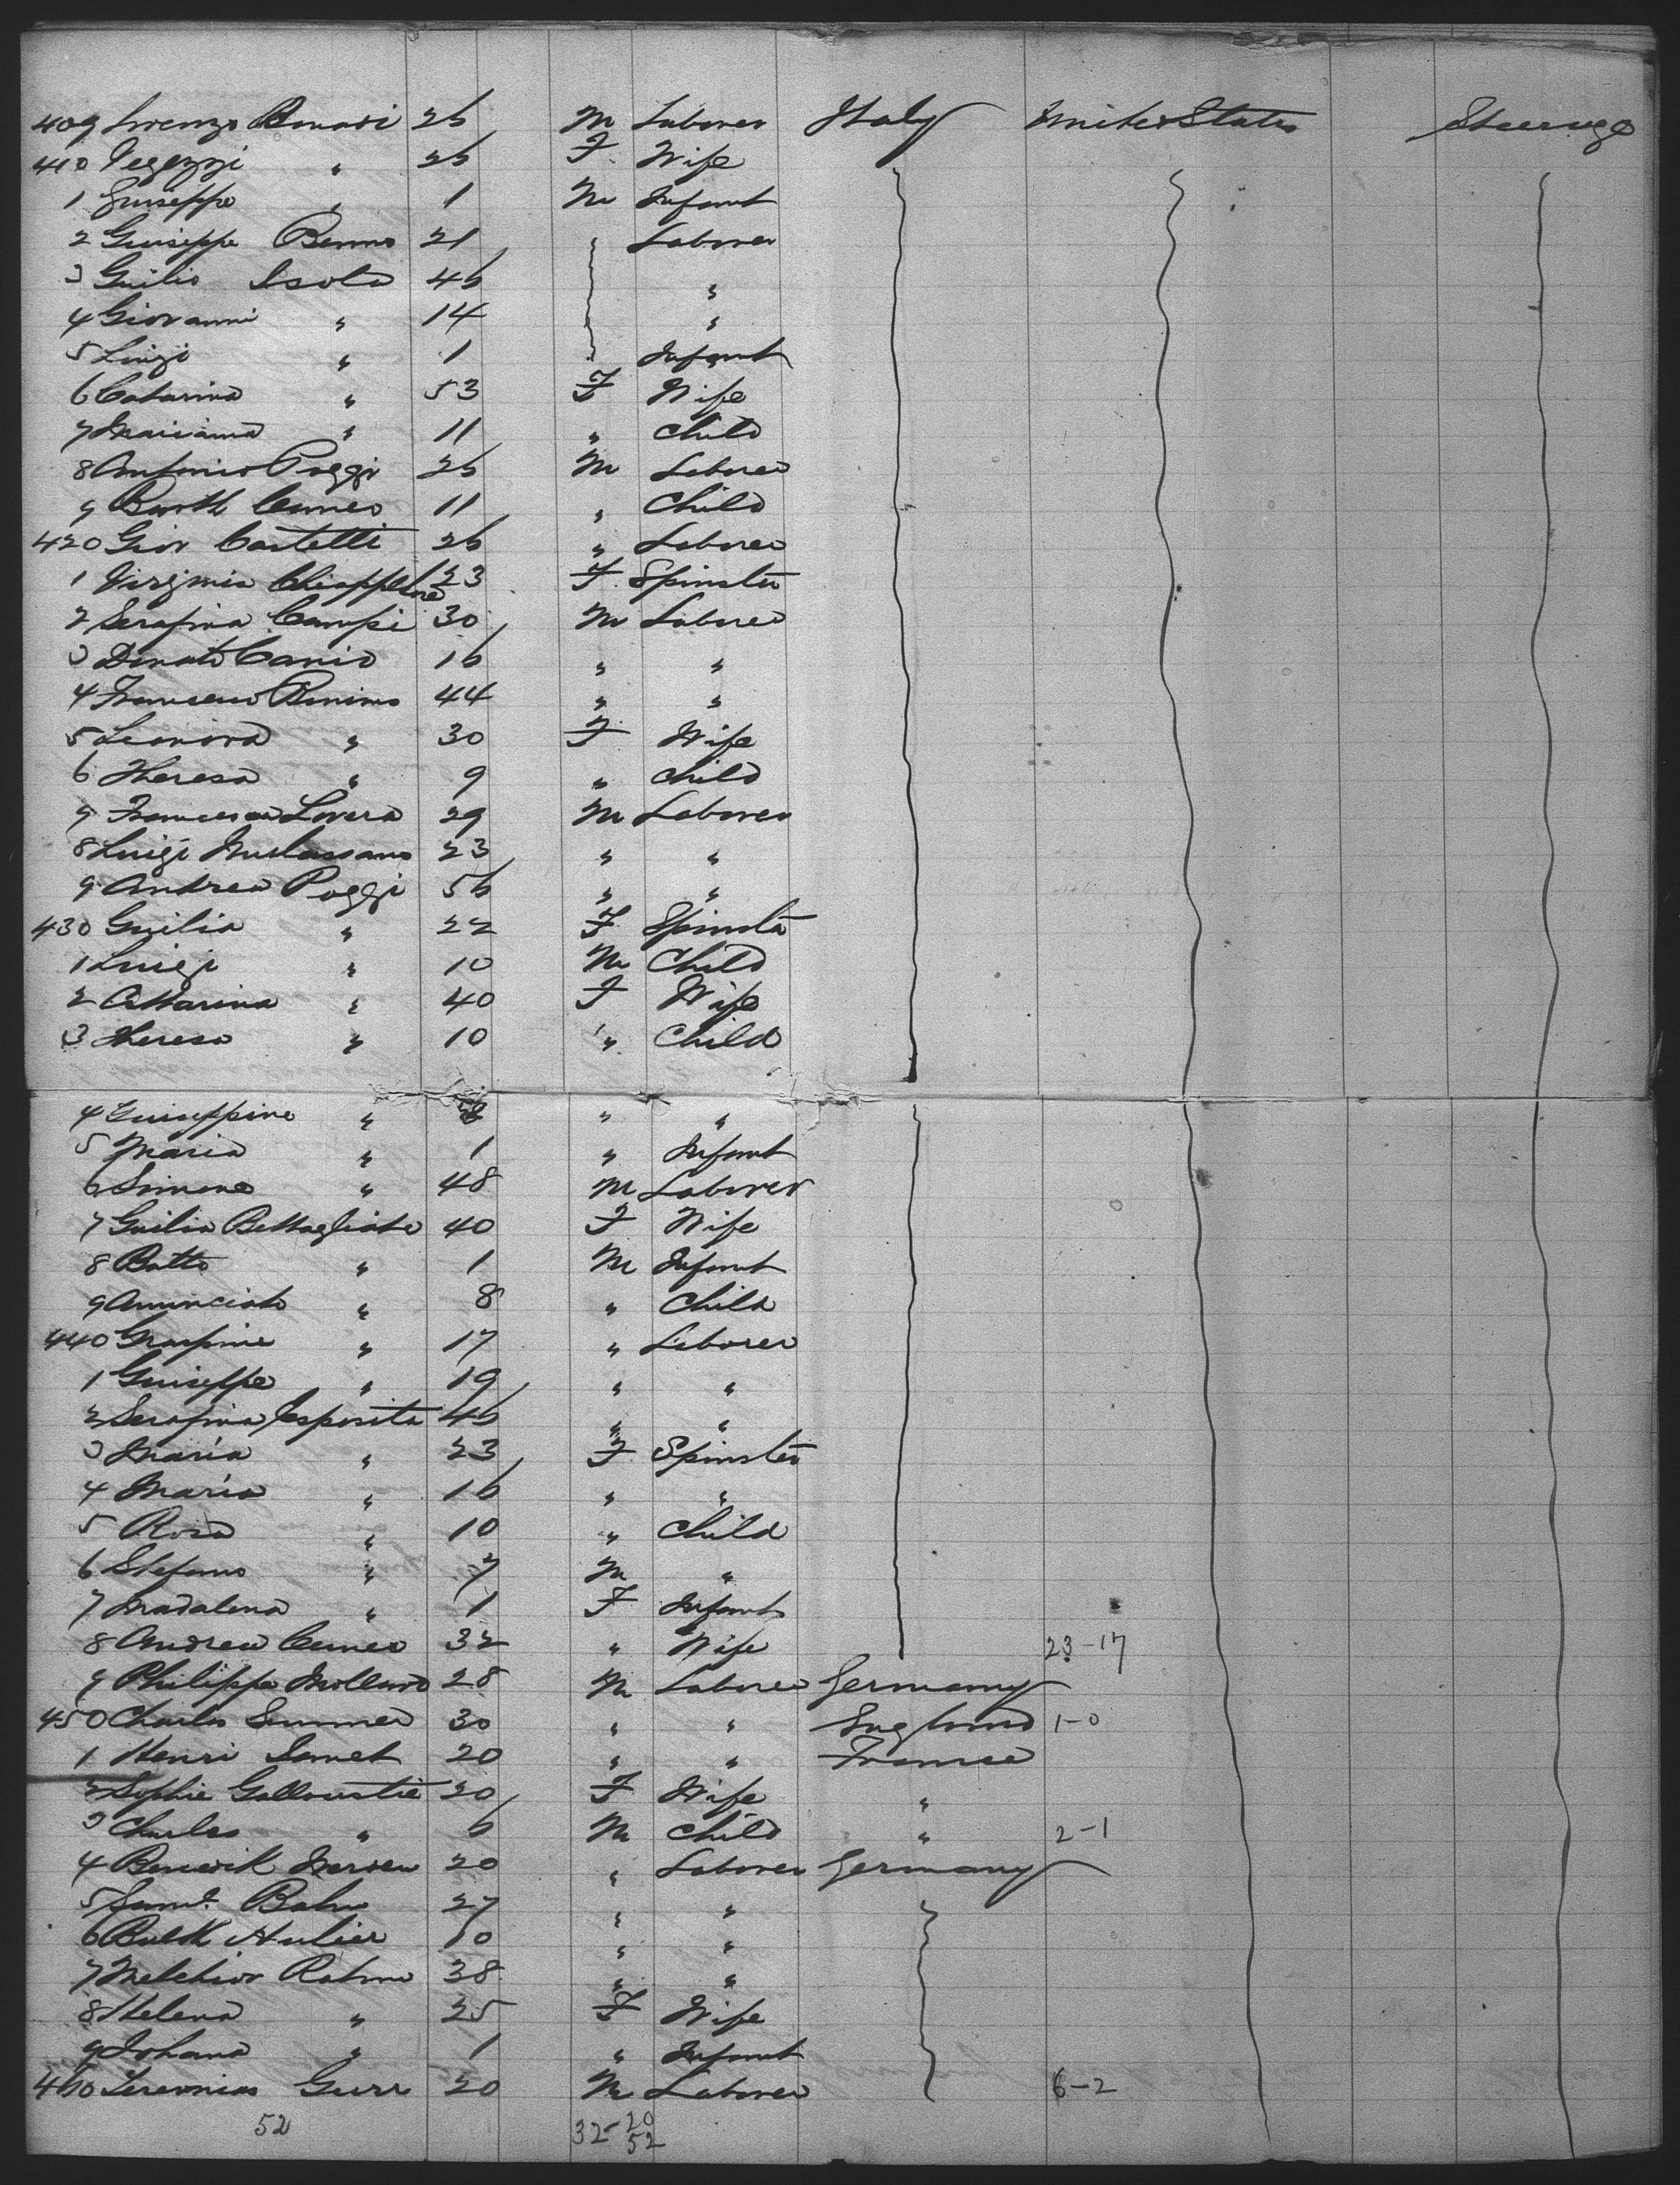 409 Lorenzo Bonari 26 M Laborer Italy United States Steerage
410 " 26 F. Wife
1 Guiseppe " 1 M Infant
2 Guiseppe Benno 21 " Laborer
3 Guilio Isola 46 "
4 Giovanni " 14 "
5 Luigi " 1 Infant
6 Catarina " 53 F Wife
7 Marianna " 11 " Child
8 Antonio Poggi 26 M Laborer
9 Barth Cuneo 11 " Child
420 Giov Castelli 26 " Laborer
1 Virginia Chiappelone 23 F. Spinster
2 Serafina Campi 30 M Laborer
3 Donato Canio 16 " "
4 Francesco Bonino 44 " "
5 Leonora " 30 F Wife
6 Theresa " 9 " Child
7 Francesco Lovera 29 M Laborer
8 Luigi 23 " "
9 Andrea Poggi 56 " "
430 Guilia " 22 F Spinster
1 Luigi " 10 M Child
2 Catharina " 40 F Wife
3 Theresa " 10 " Child
4 Guiseppine " " "
5 Maria " 1 " Infant
6 Simone " 48 M Laborer
7 Guilia Battagliate 40 F Wife
8 Batto " 1 M Infant
9 Anunciato " 8 " Child
440 " 17 " Laborer
1 Guiseppe " 19 " "
2 Serafina Esposita 46 " "
3 Maria " 23 F Spinster
4 Maria " 16 " "
5 Rosa " 10 " Child
6 Stefano " 7 M "
7 Madalena " 1 F Infant
8 Andrea Cuneo 32 " Wife 23-17
9 Philippe 28 M Laborer Germany
450 Charles Sumner 30 " " England 1-0
1 Henri Samet 20 " " France
2 Sophie Galloustie 20 F Wife "
3 Charles " 6 M Child " 2-1
4 20 " Laborer Germany
5 Saml. Bahn 27 " "
6 10 " "
7 Melchior Rahm 38 " "
8 Helena " 25 F Wife
9 Johana " 1 " Infant
460 Geremias Gurr 20 M Laborer 6-2
52 32-20
52